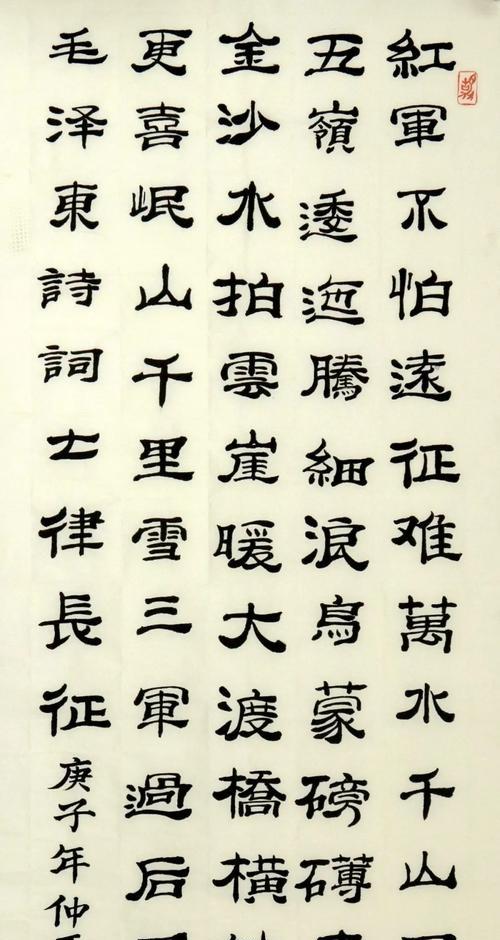 紅軍不怕遠征难萬水千山
五嶺逶迤騰細浪鳥蒙磅礴
金沙水拍雲崖暖大渡橋横
更喜岷山千里雪三軍過后
毛泽東詩詞七律長征
庚子年仲